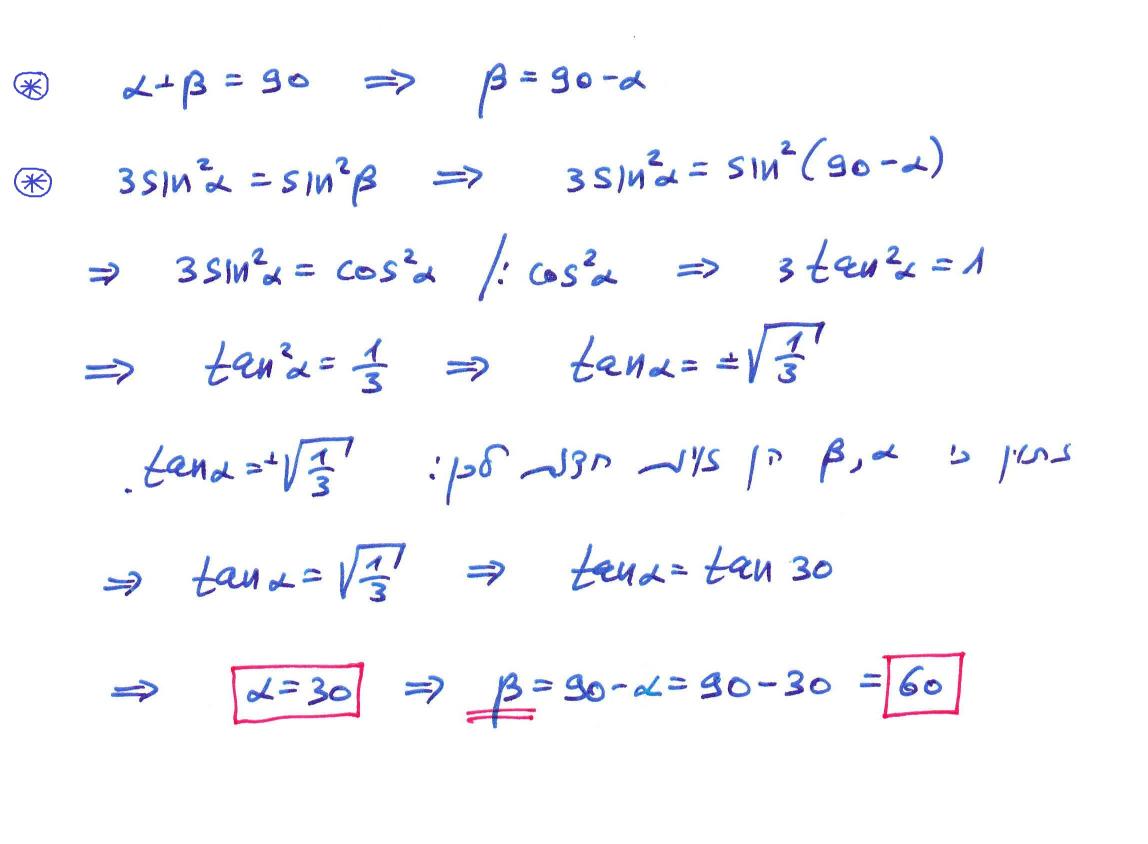 ⊛ α+β = 90 ⇒ β = 90-α
⊛ 3sin²α = sin²β ⇒ 3sin²α = sin²(90-α)
⇒ 3sin²α = cos²α /: cos²α ⇒ 3tan²α = 1
⇒ tan²α = 1/3 ⇒ tanα = ±√(1/3)
כי α, β הן זוית חדות לכן: tanα = +√(1/3).
⇒ tanα = √(1/3) ⇒ tanα = tan 30
⇒ α = 30 ⇒ β = 90-α = 90-30 = 60